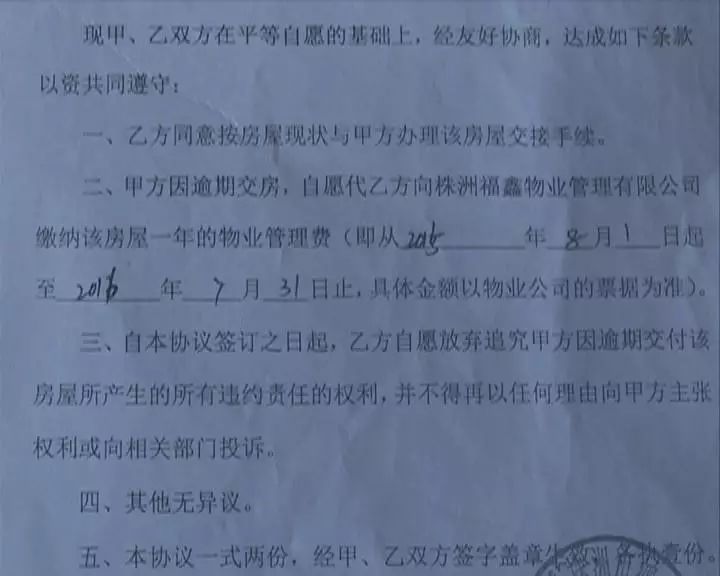 现甲、乙双方在平等自愿的基础上，经友好协商，达成如下条款
以资共同遵守：
一、乙方同意按房屋现状与甲方办理该房屋交接手续。
二、甲方因逾期交房，自愿代乙方向株洲福鑫物业管理有限公司
缴纳该房屋一年的物业管理费（即从2015年8月1日起
至2016年7月31日止，具体金额以物业公司的票据为准）。
三、自本协议签订之日起，乙方自愿放弃追究甲方因逾期交付该
房屋所产生的所有违约责任的权利，并不得再以任何理由向甲方主张
权利或向相关部门投诉。
四、其他无异议。
五、本协议一式两份，经甲、乙双方签字盖章生效，各执壹份。